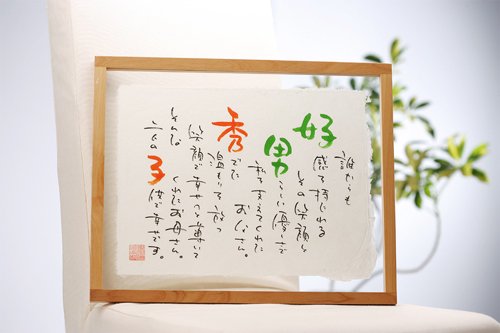 誰からも
好感を持たれる
その笑顔と
男らしい優しさで
私を支えてくれた
お父さん。
秀でた
温もりを放つ
笑顔で幸せへと導いて
くれたお母さん。
そんな
二人の子供で幸せです。